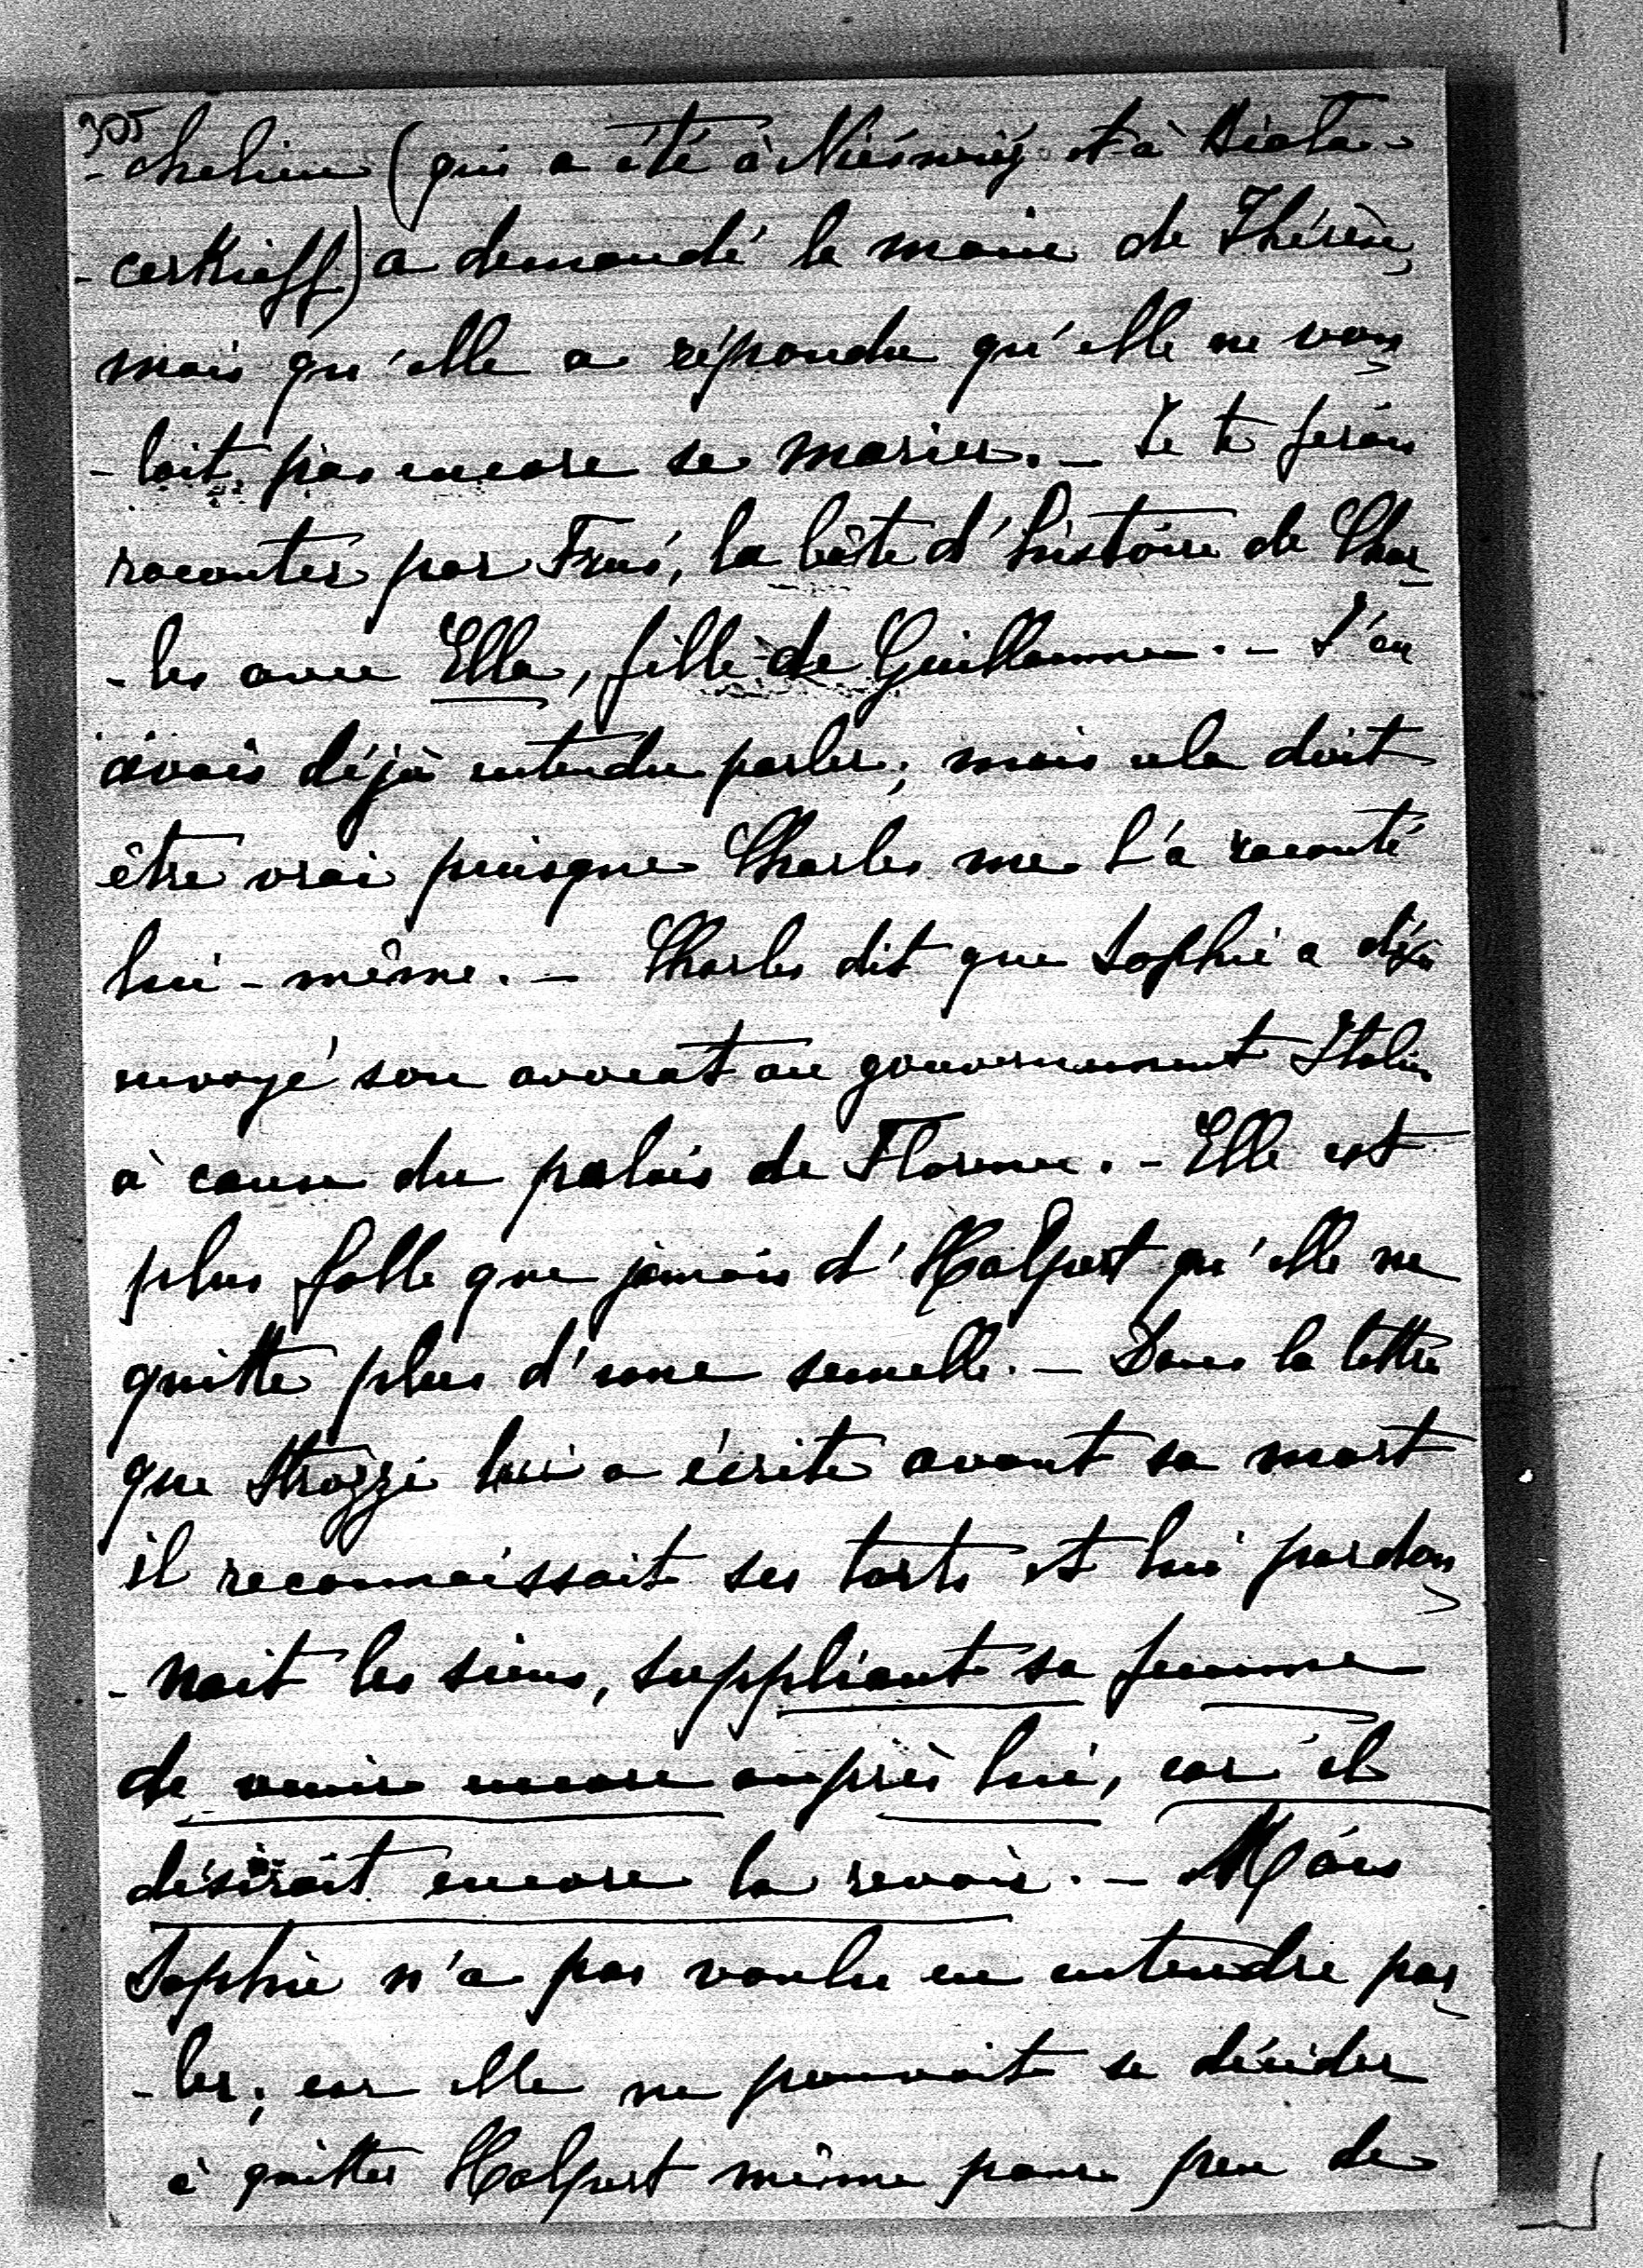 305
-chelieu (qui a été à Nieśwież et à Biała-
-cerkieff) a demandé la main de Thérèse,
mais qu'elle a répondu qu'elle ne vou
-lait pas encore se marier. _ Je te ferai
raconter par Fruś, la bête d'histoire de Char
-les avec Ella, fille de Guillaume. - J'en
avais déjà entendu parler; mais cela doit
être vrai puisque Charles me l'a raconté
lui-même. _ Charles dit que Sophie a déjà
envoyé son avocat au gouvernement Italien
à cause du palais de Florence. - Elle est
plus folle que jamais d'Halpert qu'elle ne
quitte plus d'une semelle. _ Dans la lettre
que Strozzi lui a écrite avant sa mort
il reconnaissait ses torts et lui pardon
-nait les siens, suppliant sa femme
de venir encore auprès lui, car il
désirait encore la revoir. _ Mais
Sophie n'a pas voulu en entendre par
-ler; car elle ne pouvait se décider
à quitter Halpert même pour peu de